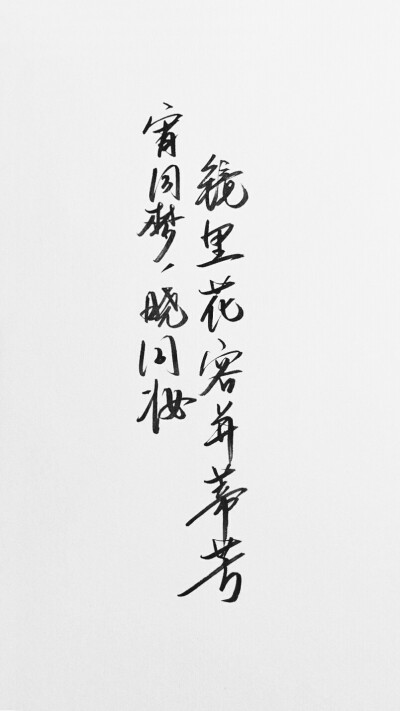 宵同梦、晓同妆
镜里花容并蒂芳